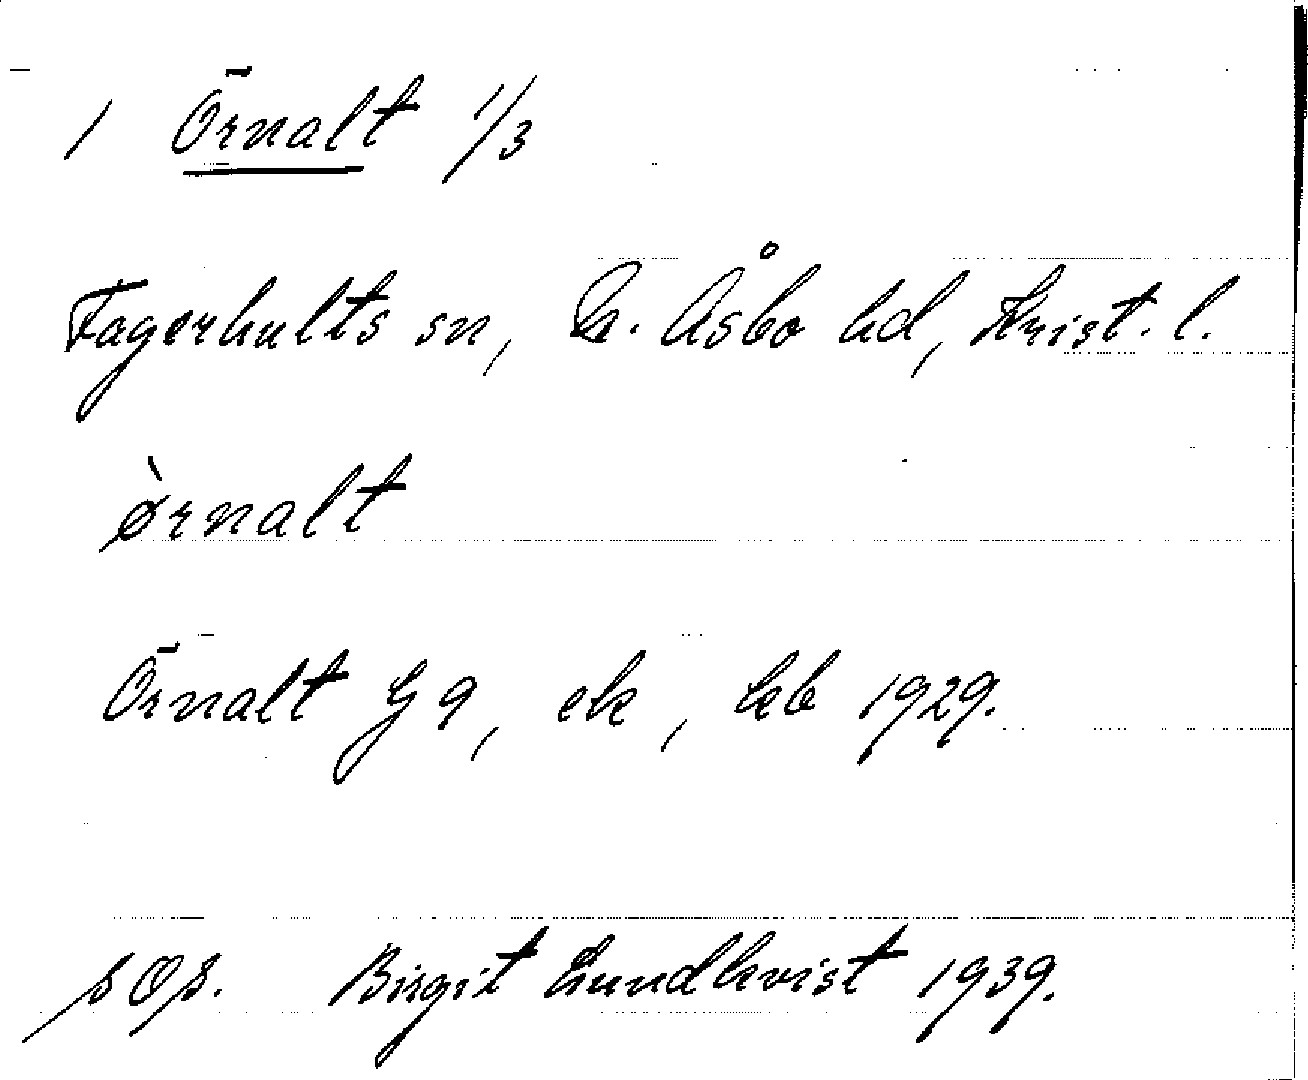 1 Örnalt 1/3
Fagerhults sn, N. Åsbo hd, Krist. l.
ø̀rnalt
Örnalt G 9, ek, kb 1929.
Birgit Lundkvist 1939.